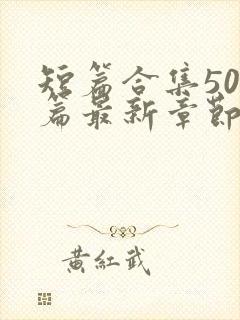 短篇合集50
篇最新章節
黃紅武